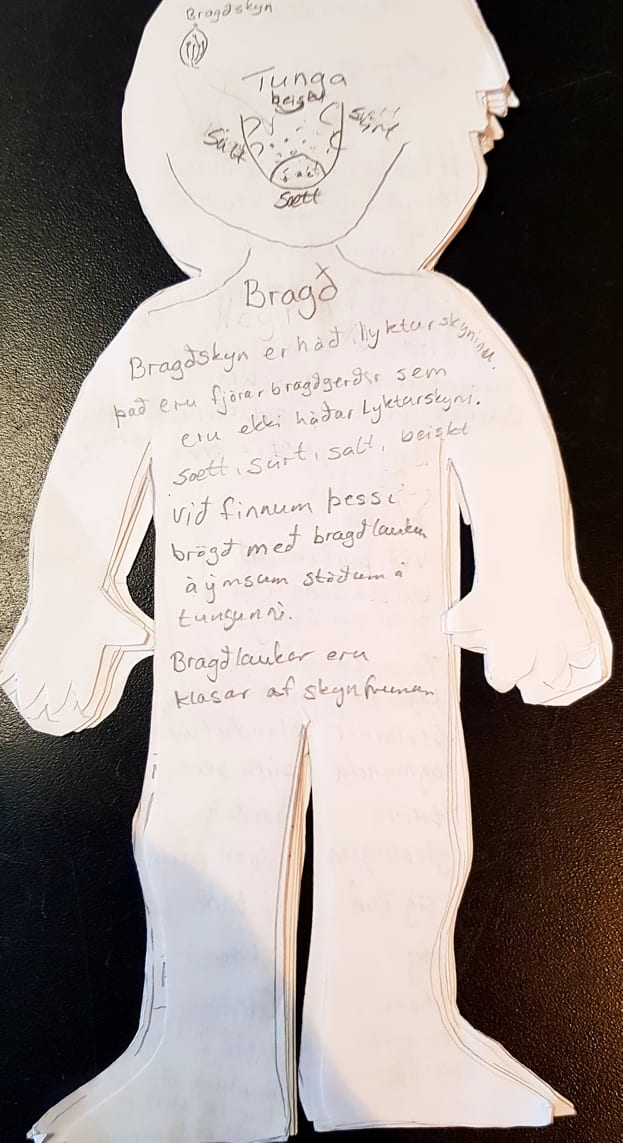 Bragðskyn
Tunga
beiskt
Salt
Súrt
Sætt
Bragð
Bragðskyn er háð lyktarskyninu.
það eru fjórar bragðgerðir sem
eru ekki háðar lyktarskyni.
sætt, súrt, salt, beiskt
við finnum þessi
brögð með bragðlaukum
á ýmsum stöðum á
tungunni.
Bragðlaukar eru
klasar af skynfrumum